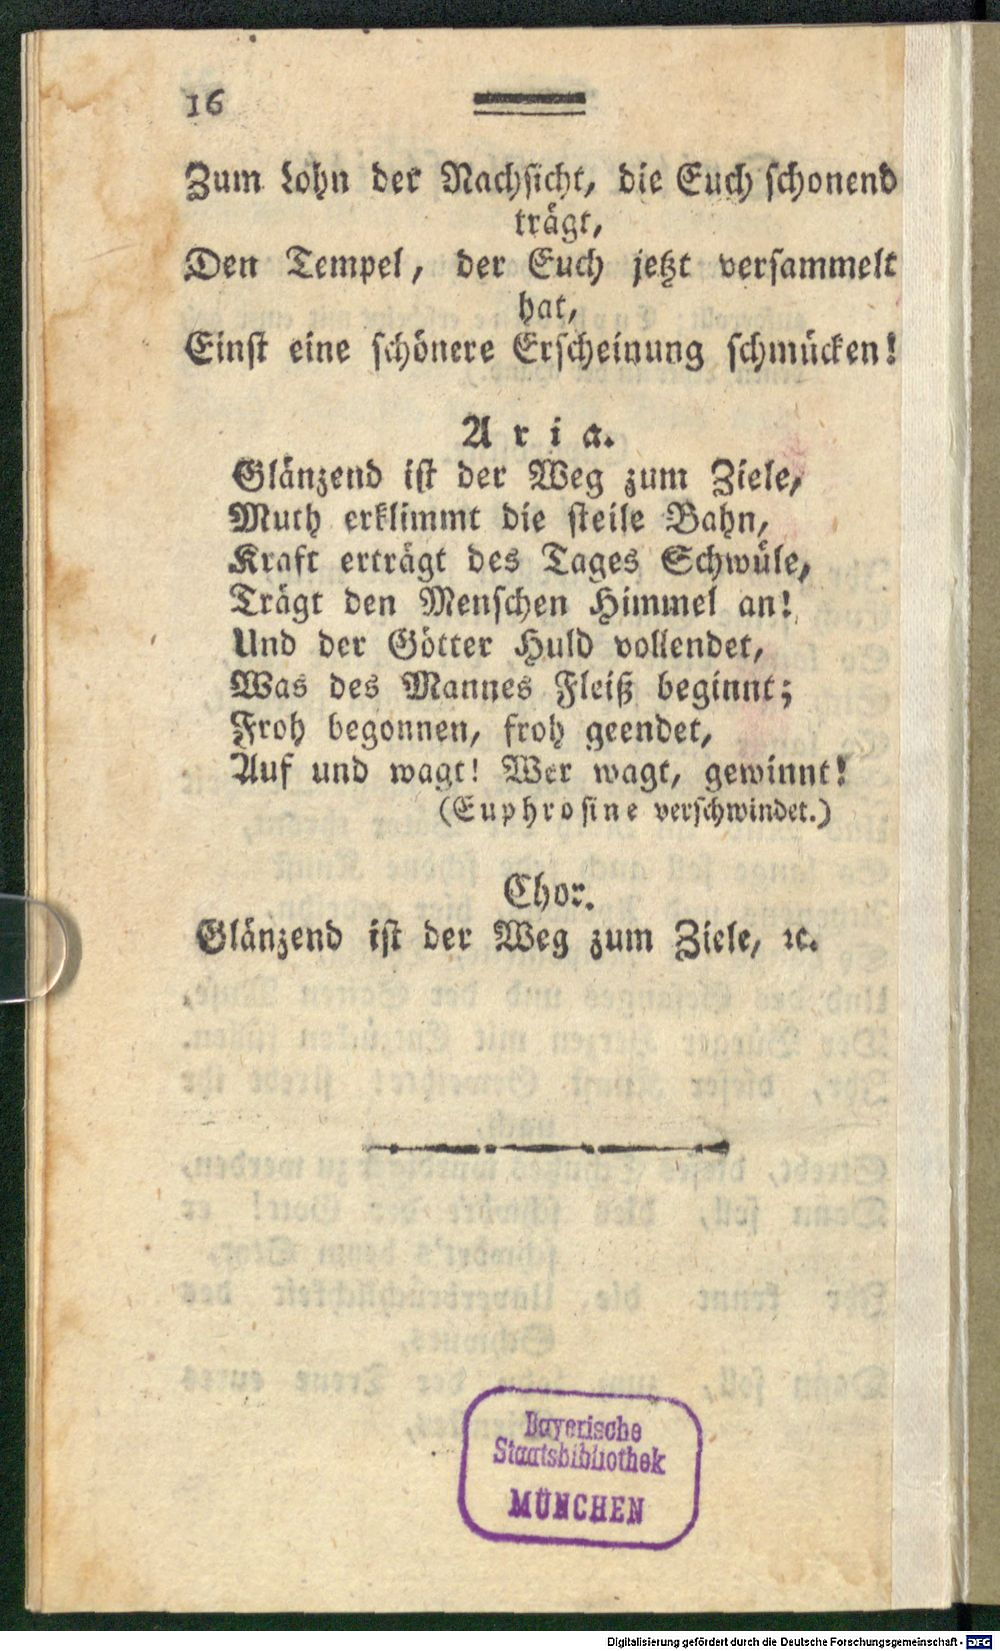 16
Zum Lohn der Nachsicht, die Euch schonend
trägt,
Den Tempel, der Euch jetzt versammelt
hat,
Einst eine schönere Erscheinung schmücken!
Aria.
Glänzend ist der Weg zum Ziele,
Muth erklimmt die steile Bahn,
Kraft erträgt des Tages Schwüle,
Trägt den Menschen Himmel an!
Und der Götter Huld vollendet,
Was des Mannes Fleiß beginnt;
Froh begonnen, froh geendet,
Auf und wagt! Wer wagt, gewinnt!
(Euphrosine verschwindet.)
Chor.
Glänzend ist der Weg zum Ziele, ꝛc.
Bayerische
Staatsbibliothek
MÜNCHEN
Digitalisierung gefördert durch die Deutsche Forschungsgemeinschaft - DFG